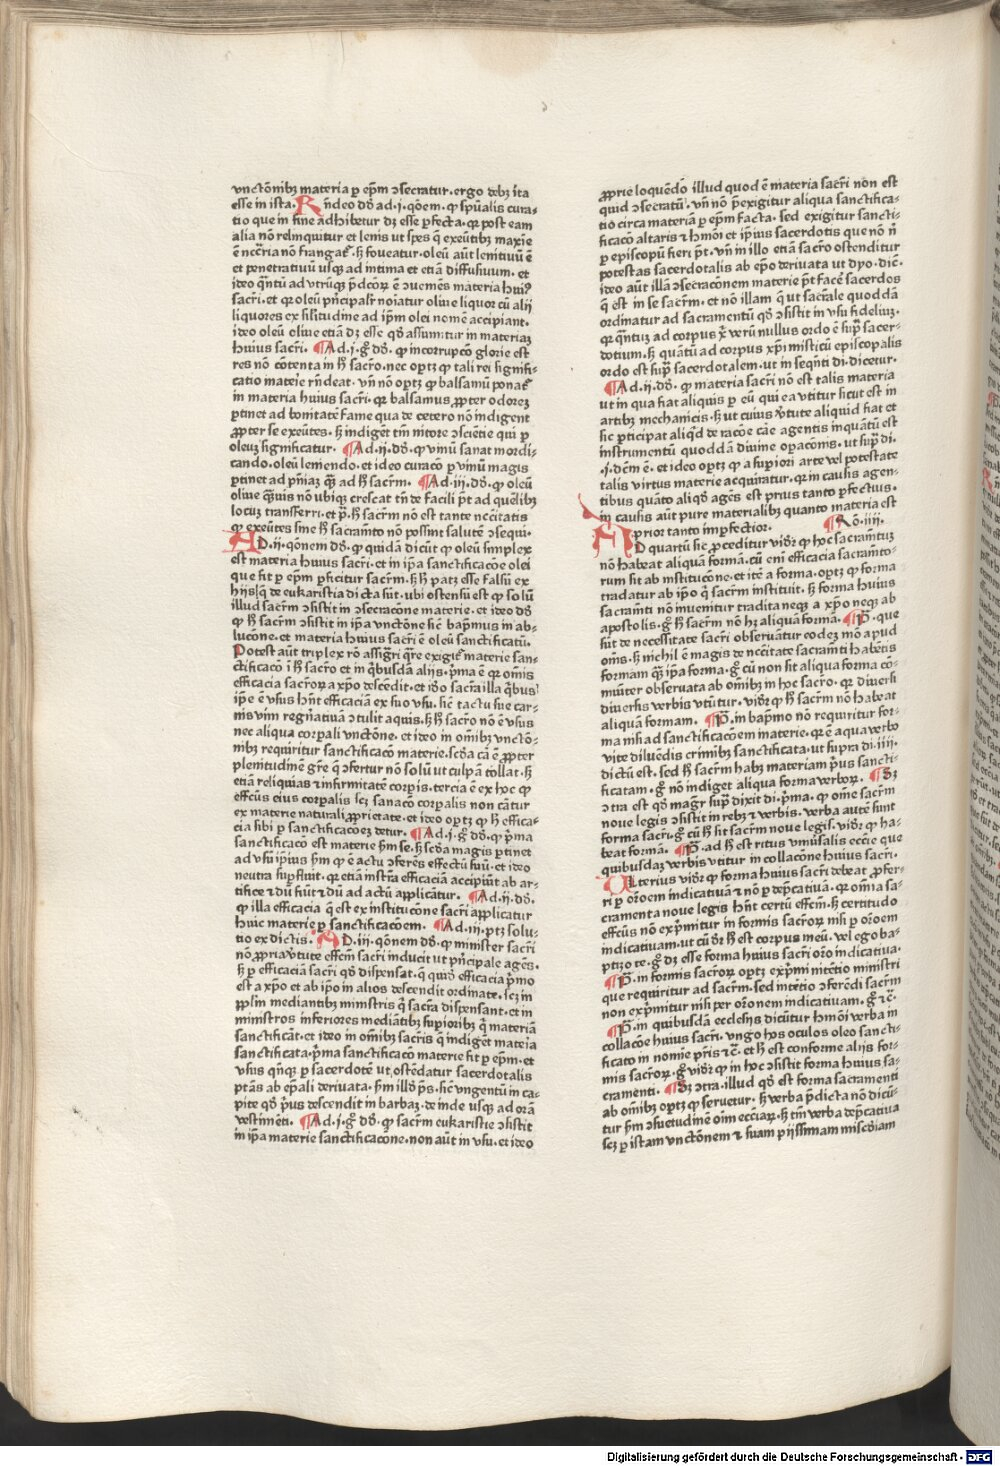 vnctōnibꝫ materia ꝑ ep̄m ɔsecratur . ergo debꝫ ita
esse in ista . Rn̄deo dō ad . j . qōem . ꝙ spūalis cura⸗
tio que in fine adhibetur dꝫ esse ꝑfecta . qꝛ post eam
alia nō relinquitur et lenis ut spes q̄ exeūtibꝫ maxīe
ē nccr̄ia nō frangat᷑ . ꝫ foueatur . oleū aūt lenitiuū ē
et penetratiuū usqꝫ ad intima et etiā diffusiuum . et
ideo quātū ad vtrūqꝫ p̄dcōꝝ ē ɔuemēs materia huiꝰ
sacr̄i . et qꝛ oleū prīcipalit noīatur oliue liquor cū alij
liquores ex silitudine ad ip̄m olei nomē accipiant .
ideo oleū oliue etiā dꝫ esse qd̄ assumitur in materiaꝫ
huius sacr̄i . ¶ Ad . j . gͦ dō . ꝙ incorrupcō glorie est
res nō cōtenta in h̄ sacro . nec optꝫ ꝙ tali rei signifi⸗
catio mateīe rn̄deat . vn̄ nō optꝫ ꝙ balsamū ponat᷑
in materia huius sacr̄i . qꝛ balsamus ꝓpter odoreꝫ
ꝑtinet ad bonitatē fame qua de cetero nō indigent
ꝓpter se exeūtes . ꝫ indigēt tm̄ nitore ɔsciētie qui ꝑ
oleuꝫ significatur . ¶ Ad . ij . dō . ꝙ vinū sanat mordi⸗
cando . oleū leniendo . et ideo curacō ꝑ vinū magis
ꝑtinet ad pn̄iaꝫ qꝫ ad h̄ sacr̄m . ¶ Ad . iij . dō . ꝙ oleū
oliue quāuis nō ubiqꝫ crescat tn̄ de facili pt̄ ad quēlibꝫ
locuꝫ transferri . et p̄ . h̄ sacr̄m nō est tante nc̄citatis
ꝙ exeūtes sine h̄ sacramēto nō possint salutē ɔsequi .
AD . ij . qōnem dō . ꝙ quidā dicūt ꝙ oleū simplex
est materia huius sacr̄i . et in ip̄a sanctificacōe olei
que fit ꝑ ep̄m ꝑficitur sacr̄m . ꝫ h̄ patꝫ esse falsū ex
hijs q̄ de eukaristia dicta sūt . ubi ostensū est ꝙ solū
illud sacr̄m ɔsistit in ɔsecracōne materie . et ideo dō
ꝙ h̄ sacr̄m ɔsistit in ip̄a vnctōne sic̄ bap̄mus in ab⸗
lucōne . et materia huius sacr̄i ē oleū sanctificatū .
Potest aūt triplex rō assig̅ri quare exigit᷑ materie san⸗
ctificacō ī h̄ sacro et in qbusdā alijs . pͥma ē qꝛ omīs
efficacia sacroꝝ a xp̄o descēdit . et iō sacr̄a illa qͥbus
ip̄e ē vsus hn̄t efficaciā ex suo vsu . sic̄ tactu sue car⸗
nis vim regn̄atiuā ɔtulit aquis . ꝫ h̄ sacro nō ē vsus
nec aliqua corꝑali vnctōne . et ideo in oīnibꝫ vnctō⸗
nibꝫ requiritur sanctificacō materie . scd̄a cā ē ꝓpter
plenitudinē gr̄e q̄ ɔfertur nō solū ut culpā tollat . ꝫ
etiā reliquias ⁊ infirmitatē corꝑis . tercia ē ex hoc ꝙ
effcūs eius corꝑalis scꝫ sanacō corꝑalis non cātur
ex materie naturali ꝓprietate . et ideo optꝫ ꝙ h̄ effica⸗
cia sibi ꝑ sanctificacōeꝫ detur . ¶ Ad . j . gͦ dō . ꝙ pͥma
sanctificacō est materie ẜm se . ꝫ scd̄a magis ꝑtinet
ad vsū ip̄ius ẜm ꝙ ē actu ɔferēs effectū suū . et ideo
neutra suꝑfluit . qꝛ etiā instr̄a efficaciā accipiūt ab ar⸗
tifice ⁊ dū fiūt ⁊ dū ad actū applicātur . ¶ Ad . ij . dō .
ꝙ illa efficacia q̄ est ex institucōne sacr̄i applicatur
huic materie ꝑ sanctificacōem . ¶ Ad . iij . ptꝫ solu⸗
tio ex dictis . AD . iij . qōnem dō . ꝙ minister sacr̄i
nō ꝓpria v̄tute effcm̄ sacr̄i inducit ut prīcipale agēs .
ꝫ ꝑ efficaciā sacr̄i qd̄ dispensat . q̄ quid̄ efficacia pͥmo
est a xp̄o et ab ip̄o in alios descendit ordinate . scꝫ in
pp̄lm mediantibꝫ ministris qͥ sacr̄a dispensant . et in
ministros inferiores mediātibꝫ suꝑioribꝫ qͥ materiā
sanctificāt . et ideo in oīnibꝫ sacr̄is qͥ indigēt mateīa
sanctificata . pͥma sanctificacō materie fit ꝑ ep̄m . et
vsus qn̄qꝫ ꝑ sacerdotē ut ostēdatur sacerdotalis
ptās ab ep̄ali deriuata . ẜm illō ps̄ . sic̄ vngentū in ca⸗
pite qd̄ pͥus descendit in barbaꝫ . deinde usqꝫ ad orā
vestimēti . ¶ Ad . j . gͦ dō . ꝙ sacr̄m eukaristie ɔsistit
in ip̄a materie sanctificacōne . non aūt in vsu . et ideo
ꝓprie loquēdo illud quod ē materia sacr̄i non est
quid ɔsecratū . vn̄ nō p̄exigitur aliqua sanctifica⸗
tio circa materiā ꝑ ep̄m facta . sed exigitur sancti⸗
ficacō altaris ⁊ hmōi et ip̄ius sacerdotis que nō n̄
ꝑ episcopū fieri pt̄ . vn̄ in illo etiā sacro ostenditur
potestas sacerdotalis ab ep̄o deriuata ut dyo . dic̄ .
ideo aūt illā ɔsecracōnem materie pt̄ facē sacerdos
q̄ est in se sacr̄m . et nō illam q̄ ut sacr̄ale quoddā
ordinatur ad sacramentū qd̄ ɔsistit in vsu fideliuꝫ .
qꝛ quātuꝫ ad corpus xͥ verū nullus ordo ē supͣ sacer⸗
dotium . ꝫ quātū ad corpus xp̄i misticū episcopalis
ordo est supͣ sacerdotalem . ut in seqn̄ti di . dicetur .
¶ Ad . ij . dō . ꝙ materia sacr̄i nō est talis materia
ut in qua fiat aliquis ꝑ eū qui ea vtitur sicut est in
artibꝫ mechanicis . ꝫ ut cuius v̄tute aliquid fiat et
sic ꝑticipat aliqͥd de racōe cāe agentis inquātū est
instrumētū quoddā diuine oꝑacōnis . ut supͣ di .
. j . dcm̄ ē . et ideo optꝫ ꝙ a suꝑiori arte vel potestate
talis virtus materie acquiratur . qꝛ in causis agen⸗
tibus quāto aliqd̄ agēs est prius tanto ꝑfectius .
in causis aūt pure materialibꝫ quanto materia est
prior tanto imꝑfectior . ¶ Rō . iiij .
AD quartū sic ꝓceditur vidr̄ ꝙ hoc sacramētuꝫ
nō habeat aliquā formā . cū eni efficacia sacramēto⸗
rum sit ab institucōne . et itē a forma . optꝫ ꝙ forma
tradatur ab ip̄o qͥ sacr̄m instituit . ꝫ forma huius
sacramīti nō inuenitur tradita neqꝫ a xp̄o neqꝫ ab
apostolis . gͦ h̄ sacr̄m nō hꝫ aliquā forma . ¶ P̄ . que
sūt de necessitate sacr̄i obseruātur eodeꝫ mō apud
oīns . ꝫ nichil ē magis de nc̄citate sacramīti habētis
formam qꝫ ip̄a forma . gͦ cū non sit aliqua forma cō⸗
muīter obseruata ab oīnibꝫ in hoc sacro . qꝛ diuersi
diuersis verbis vtūtur . vidr̄ ꝙ h̄ sacr̄m nō habeat
aliquā formam . ¶ P̄ . in bap̄mo nō requiritur for⸗
ma nisi ad sanctificacōem materie . qꝛ ē aqua verbo
vite diluēdis crimībꝫ sanctificata . ut supra di . iiij .
dictū est . sed h̄ sacr̄m habꝫ materiam pͥus sancti⸗
ficatam . gͦ nō indiget aliqua forma verboꝝ . ¶ Sꝫ
ɔtra est qd̄ magr̄ supͣ dixit di . pͥma . ꝙ om̄e sacr̄m
noue legis ɔsistit in rebꝫ ⁊ verbis . verba autē sunt
forma sacr̄i . gͦ cū h̄ sit sacr̄m noue legis . vidr̄ ꝙ ha⸗
beat forma . ¶ P̄ . ad h̄ est ritus vniuersalis eccīe que
quibusdaꝫ verbis vtitur in collacōne huius sacr̄i .
Ulterius vidr̄ ꝙ forma huius sacr̄i debeat ꝓfer⸗
ri ꝑ oroēm indicatiuā ⁊ nō ꝑ dep̄catiuā . qꝛ oīna sa⸗
cramenta noue legis hn̄t certū effcm̄ . ꝫ certitudo
effcūs nō exp̄mitur in formis sacroꝝ nisi ꝑ oroēm
indicatiuam . ut cū dr̄ h̄ est corpus meū . vel ego ba⸗
ptizo te . gͦ dꝫ esse forma huius sacr̄i orō indicatiua .
¶ P̄ . in formis sacroꝝ optꝫ exp̄mi intētio ministri
que requiritur ad sacr̄m . sed intētio ɔferēdi sacr̄m
non exp̄mitur nisi ꝑ orōnem indicatiuam . gͦ ⁊c̄ .
¶ P̄ . in quibusdā ecclesijs dicūtur hmōi verba in
collacōe huius sacr̄i . vngo hos oculos oleo sancti⸗
ficato in nomīe pr̄is ⁊c̄ . et h̄ est conforme alijs for⸗
mis sacroꝝ . gͦ vidr̄ ꝙ in hoc ɔsistit forma huius sa⸗
cramenti . ¶ Sꝫ ɔtra . illud qd̄ est forma sacramenti
ab oīnibꝫ optꝫ ꝙ seruetur . ꝫ verba p̄dicta nō dicū⸗
tur ẜm ɔsuetudinē oīm eccīaꝝ . ꝫ tm̄ verba dep̄catiua
scꝫ ꝑ istam vnctōnem ⁊ suam pijssimam mis̄cdiam
Digitalisierung gefördert durch die Deutsche Forschungsgemeinschaft - DFG